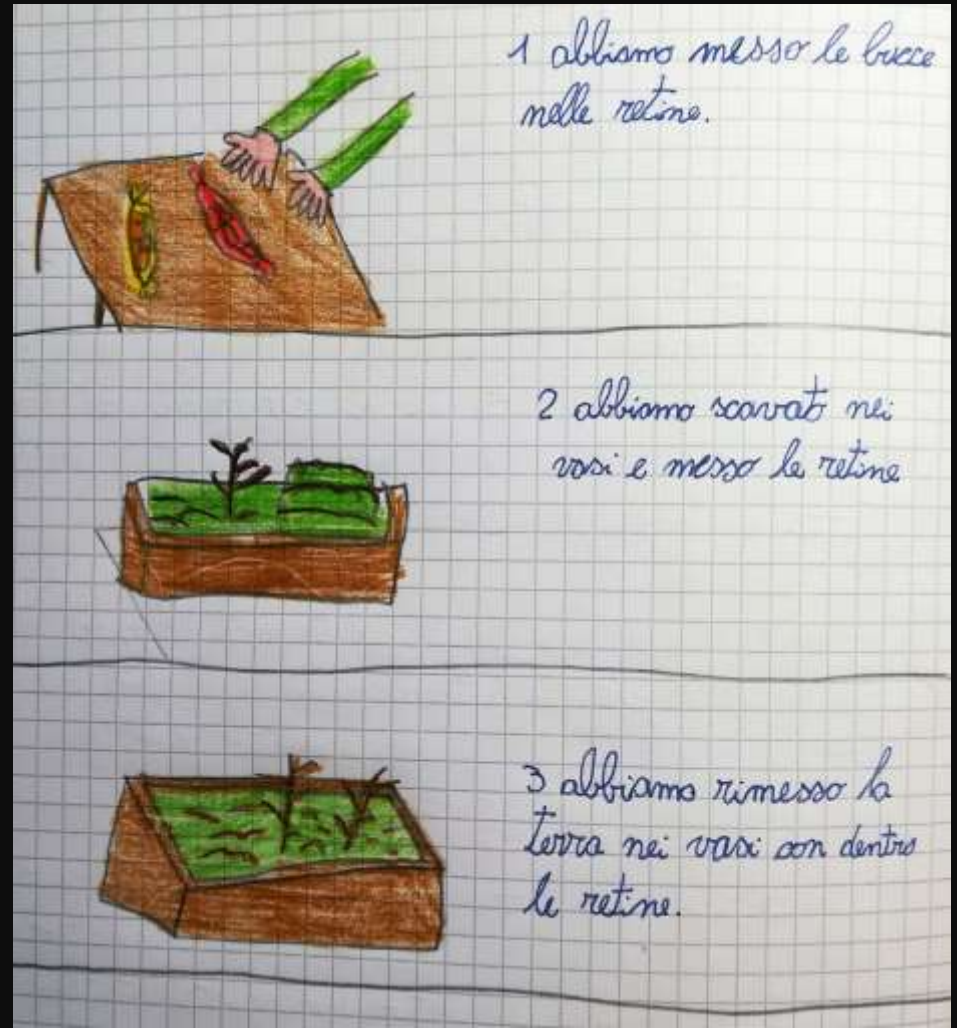 1 abbiamo messo le bucce
nelle retine.
2 abbiamo scavato nei
vasi e messo le retine
3 abbiamo rimesso la
terra nei vasi con dentro
le retine.